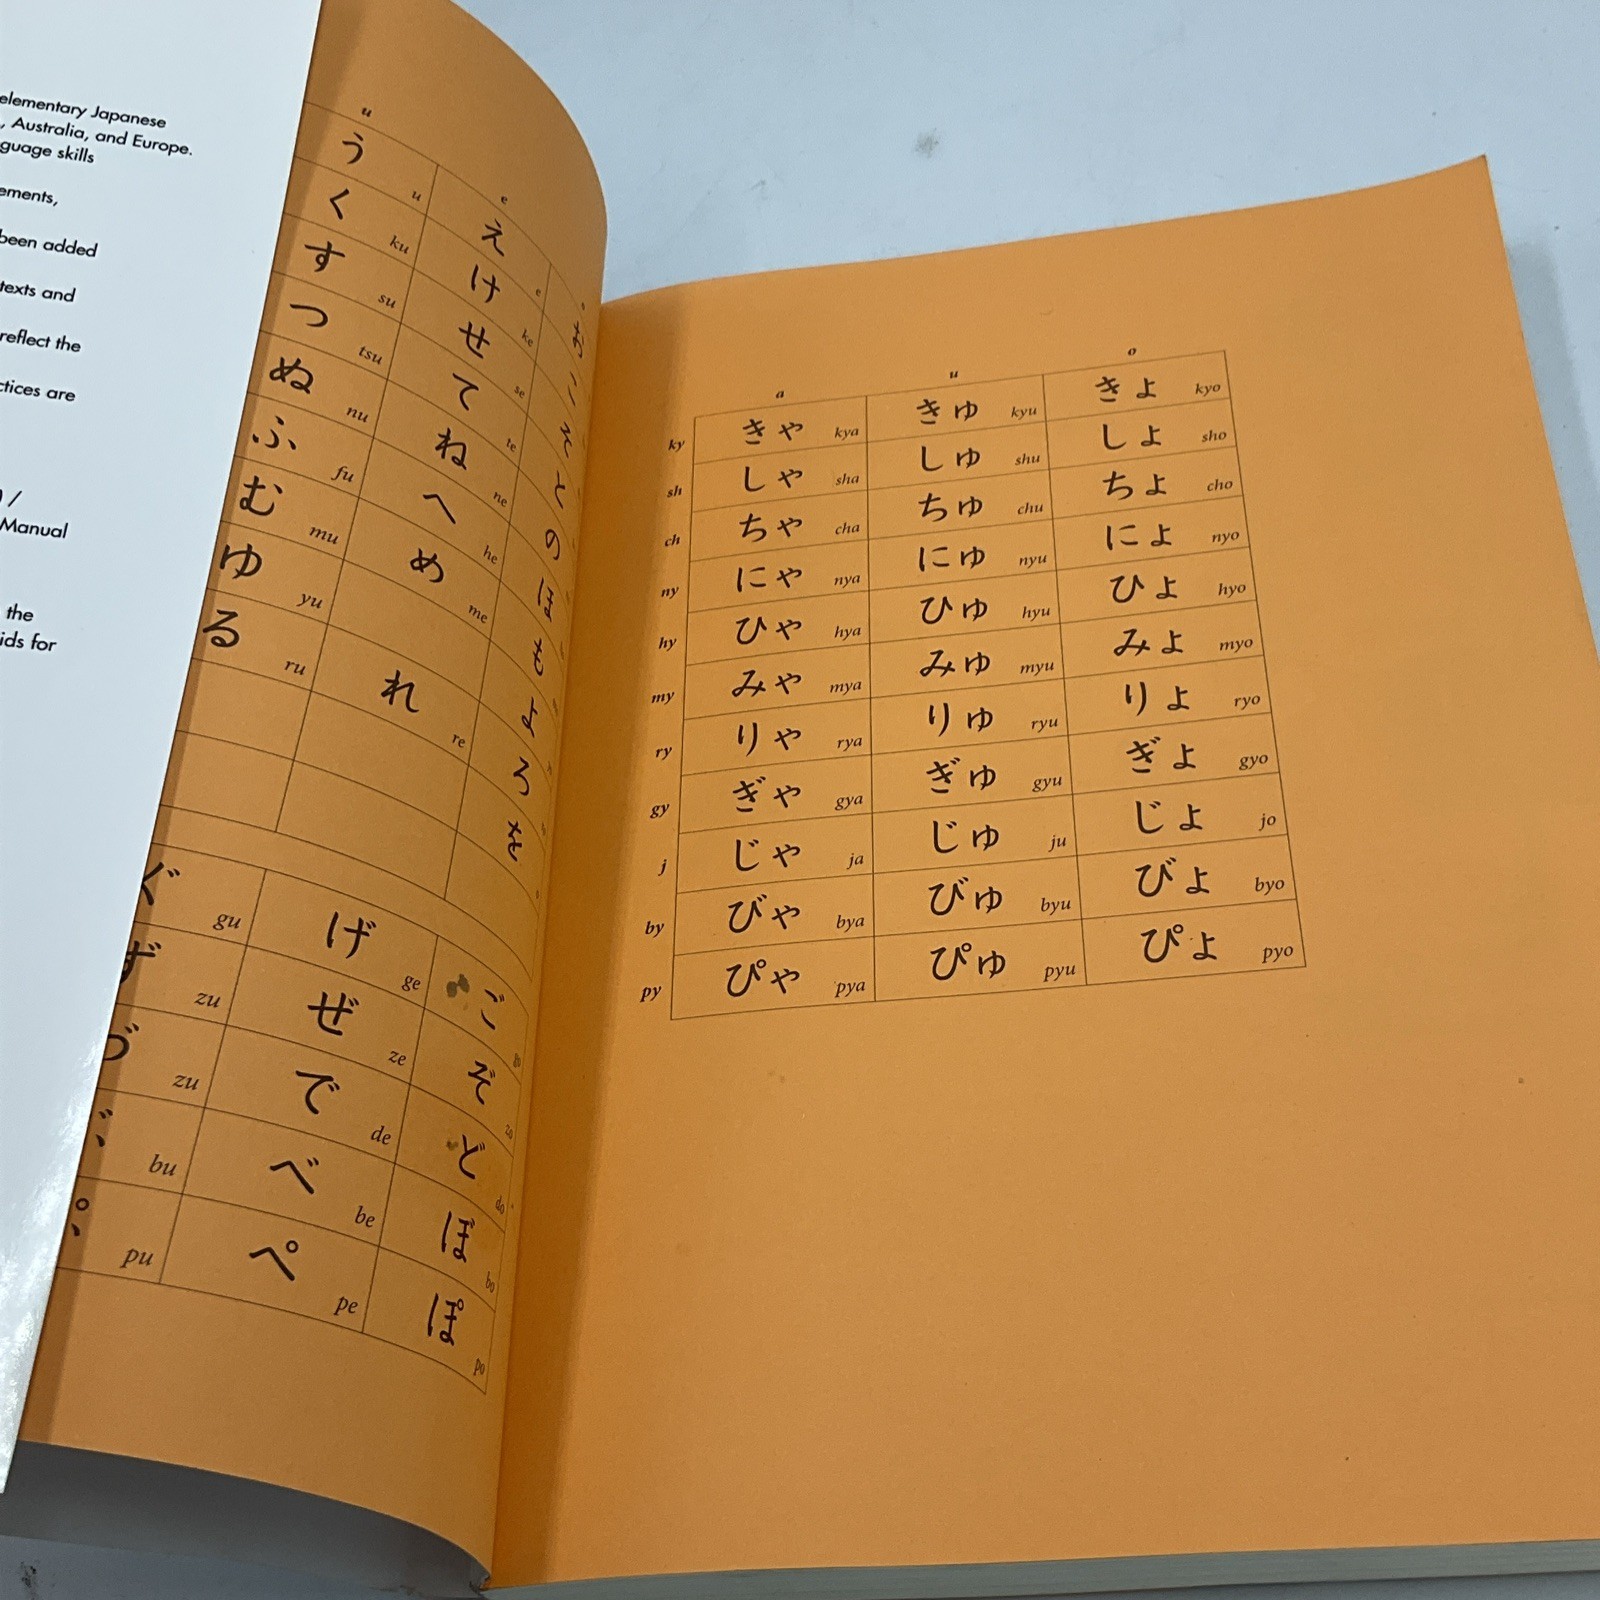 elementary Japanese
, Australia, and Europe.
guage skills
ements,
been added
texts and
reflect the
ctices are
) /
Manual
the
ids for
u e o
う u え e お
く ku け ke こ
す su せ se そ
つ tsu て te と
ぬ nu ね ne の
ふ fu へ he ほ
む mu め me も
ゆ yu よ
る ru れ re ろ
を
ぐ gu げ ge ご go
ず zu ぜ ze ぞ zo
づ zu で de ど do
bu べ be ぼ bo
pu ぺ pe ぽ po
a u o
ky きゃ kya きゅ kyu きょ kyo
sh しゃ sha しゅ shu しょ sho
ch ちゃ cha ちゅ chu ちょ cho
ny にゃ nya にゅ nyu にょ nyo
hy ひゃ hya ひゅ hyu ひょ hyo
my みゃ mya みゅ myu みょ myo
ry りゃ rya りゅ ryu りょ ryo
gy ぎゃ gya ぎゅ gyu ぎょ gyo
j じゃ ja じゅ ju じょ jo
by びゃ bya びゅ byu びょ byo
py ぴゃ pya ぴゅ pyu ぴょ pyo